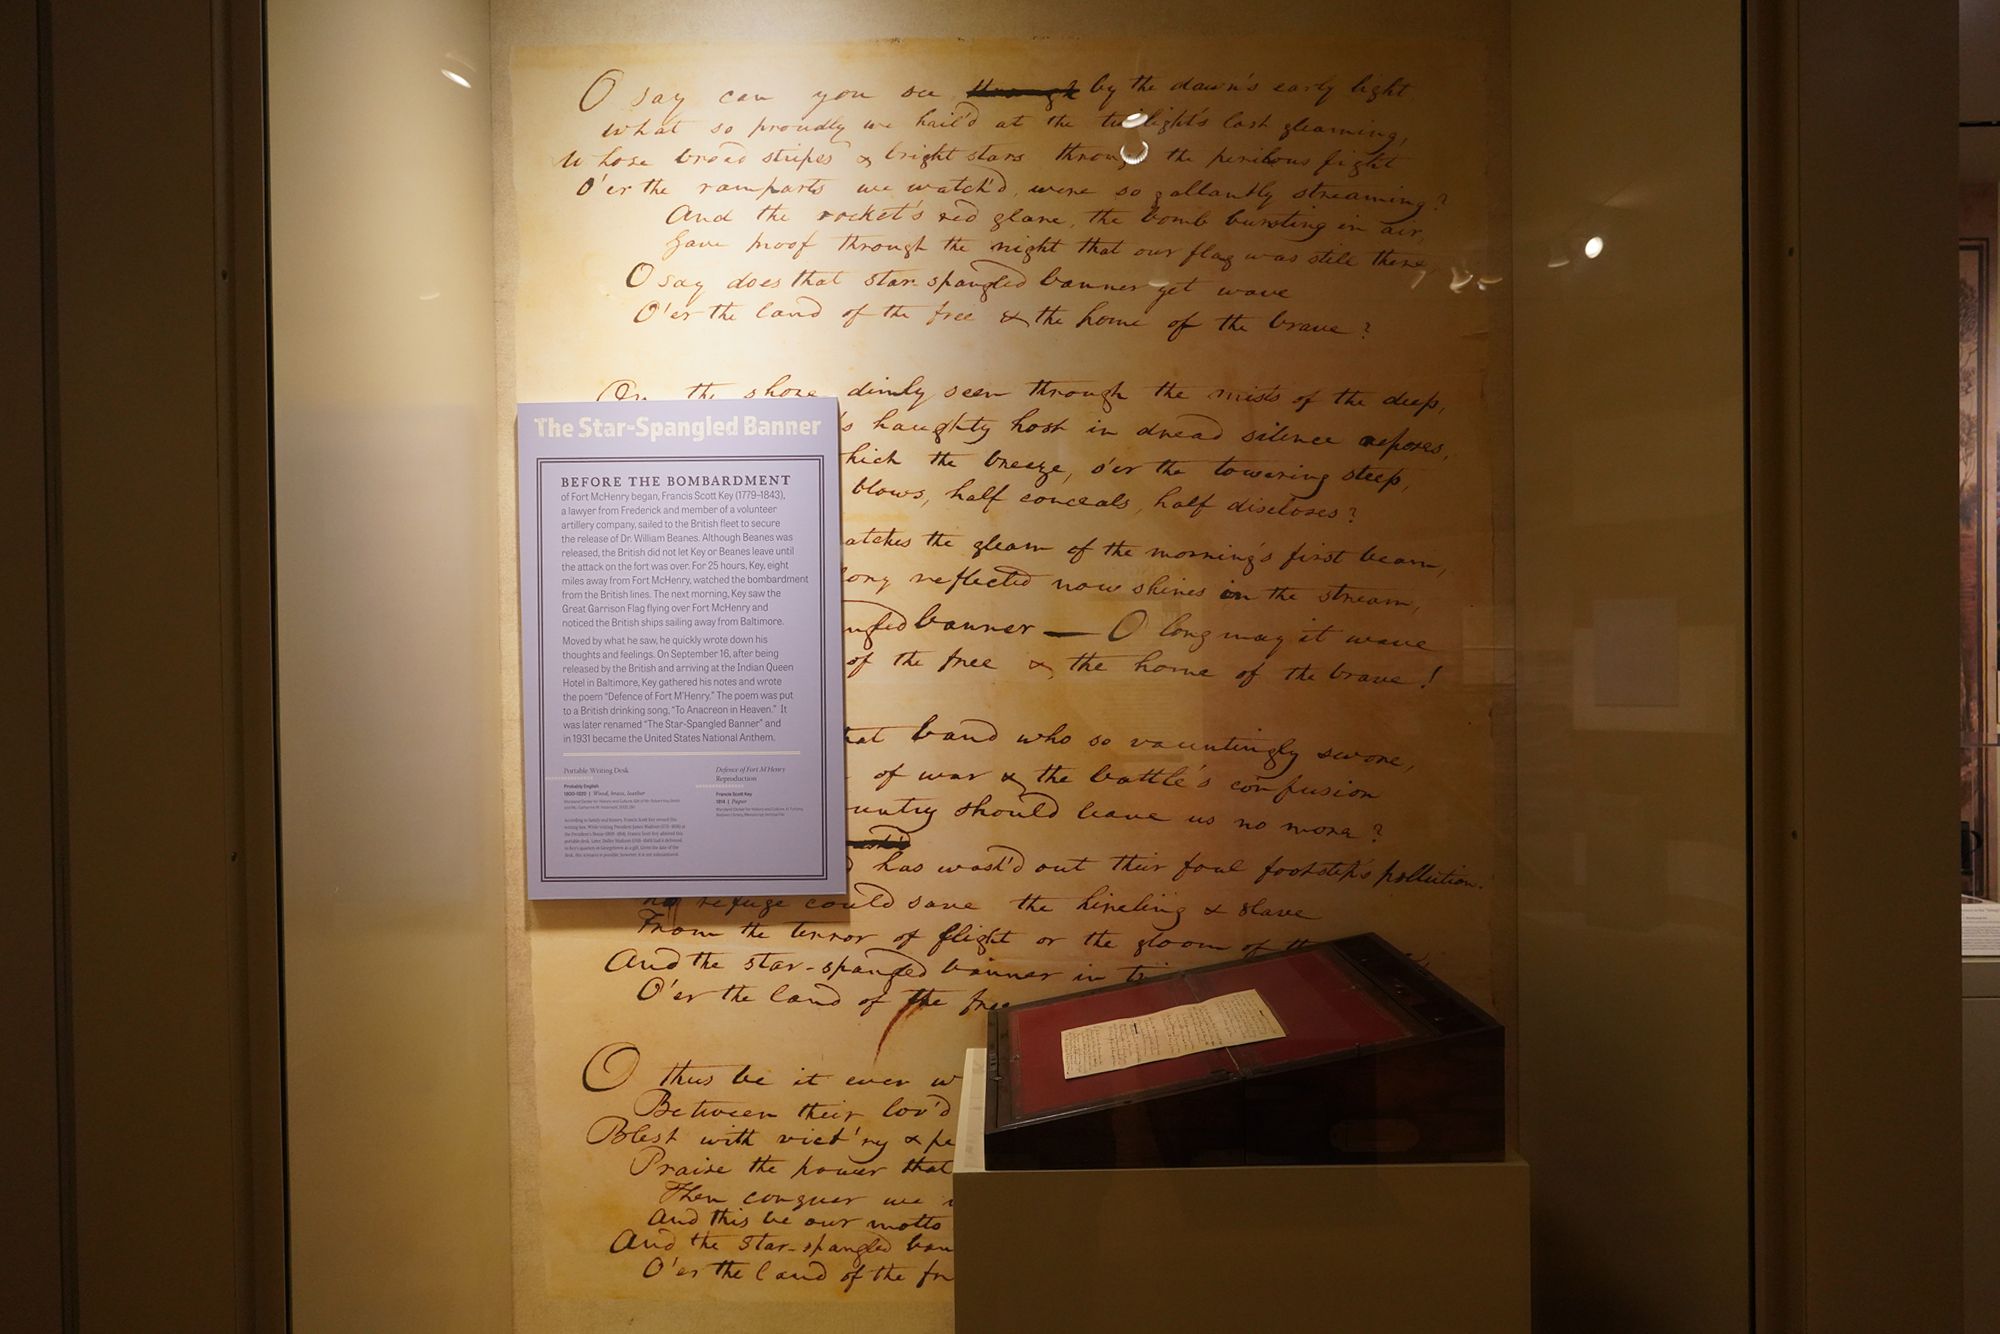 O say can you see through by the dawn's early light
what so proudly we hail'd at the twilight's last gleaming,
Whose broad stripes & bright stars through the perilous fight
O'er the ramparts we watch'd, were so gallantly streaming?
And the rocket's red glare, the bomb bursting in air,
Gave proof through the night that our flag was still there,
O say does that star-spangled banner yet wave
O'er the land of the free & the home of the brave?
On the shore dimly seen through the mists of the deep,
's haughty host in dread silence reposes,
hich the breeze, o'er the towering steep,
blows, half conceals, half discloses?
atches the gleam of the morning's first beam,
lory reflected now shines in the stream,
ngled banner — O long may it wave
of the free & the home of the brave!
hat band who so vauntingly swore,
of war & the battle's confusion
untry should leave us no more?
has wash'd out their foul footstep's pollution.
no refuge could save the hireling & slave
From the terror of flight or the gloom of th
And the star-spangled banner in tri
O'er the land of the free
O thus be it ever w
Between their lov'd
Blest with vict'ry & pe
Praise the power that
Then conquer we
And this be our motto
And the star-spangled ban
O'er the land of the fr
The Star-Spangled Banner
BEFORE THE BOMBARDMENT
of Fort McHenry began, Francis Scott Key (1779–1843),
a lawyer from Frederick and member of a volunteer
artillery company, sailed to the British fleet to secure
the release of Dr. William Beanes. Although Beanes was
released, the British did not let Key or Beanes leave until
the attack on the fort was over. For 25 hours, Key, eight
miles away from Fort McHenry, watched the bombardment
from the British lines. The next morning, Key saw the
Great Garrison Flag flying over Fort McHenry and
noticed the British ships sailing away from Baltimore.
Moved by what he saw, he quickly wrote down his
thoughts and feelings. On September 16, after being
released by the British and arriving at the Indian Queen
Hotel in Baltimore, Key gathered his notes and wrote
the poem "Defence of Fort M'Henry." The poem was put
to a British drinking song, "To Anacreon in Heaven." It
was later renamed "The Star-Spangled Banner" and
in 1931 became the United States National Anthem.
Portable Writing Desk
Probably English
1800-1820 | Wood, brass, leather
Defence of Fort M'Henry
Reproduction
Francis Scott Key
1814 | Paper